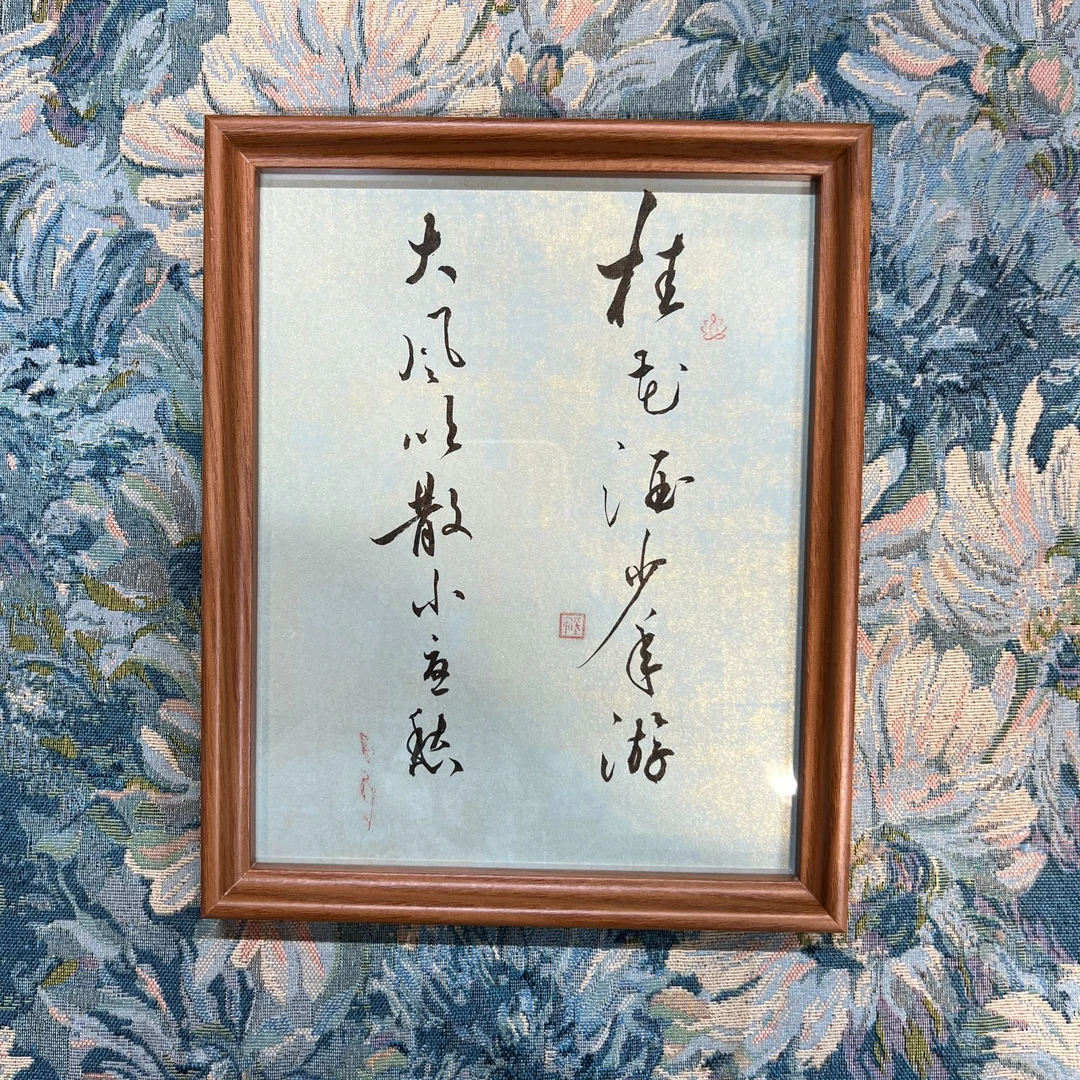 桂花酒少年游
大风吹散小忧愁